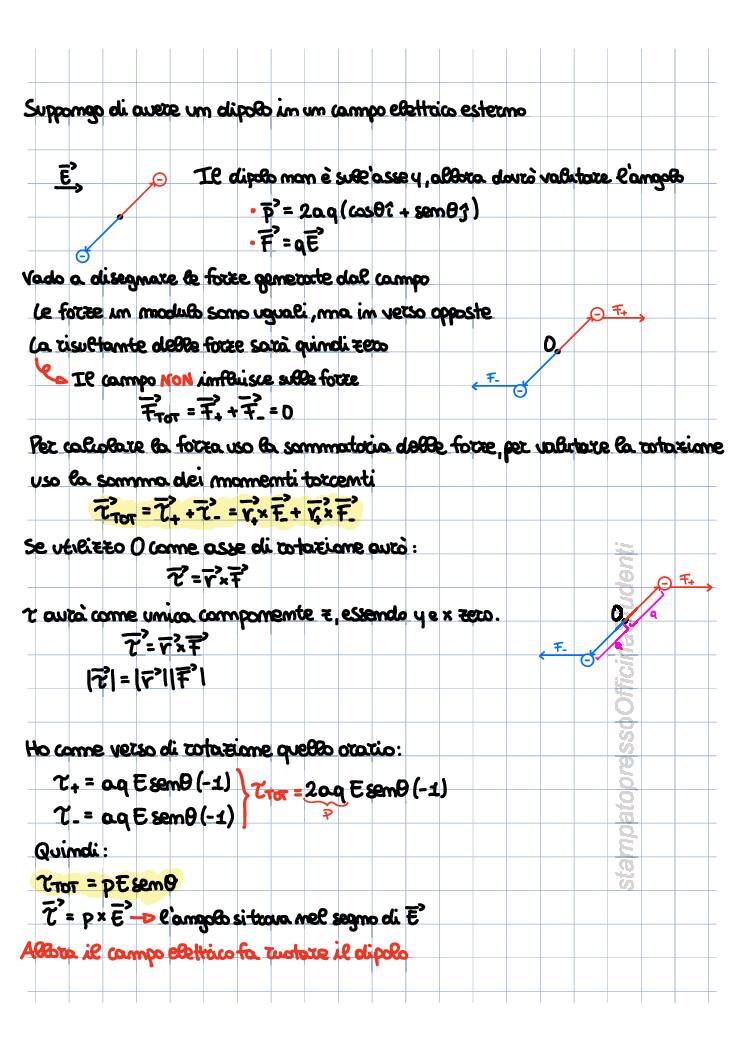 Suppongo di avere un dipolo in un campo elettrico esterno
E⃗
Il dipolo non è sull'asse y, allora dovrò valutare l'angolo
• p⃗ = 2aq (cosθî + senθĵ)
• F⃗ = qE⃗
Vado a disegnare le forze generate dal campo
Le forze in modulo sono uguali, ma in verso opposte
La risultante delle forze sarà quindi zero
Il campo NON influisce sulle forze
F⃗TOT = F⃗+ + F⃗- = 0
O F+
F-
Per calcolare la forza uso la sommatoria delle forze, per valutare la rotazione
uso la somma dei momenti torcenti
τ⃗TOT = τ⃗+ + τ⃗- = r⃗+ × F⃗- + r⃗+ × F⃗-
Se utilizzo O come asse di rotazione avrò:
τ⃗ = r⃗ × F⃗
τ avrà come unica componente z, essendo y e x zero.
τ⃗ = r⃗ × F⃗
|τ⃗| = |r⃗| |F⃗|
O F+
F- a a
Ho come verso di rotazione quello orario:
τ+ = aq E senθ (-1)
τ- = aq E senθ (-1)
τTOT = 2aq E senθ (-1)
p
Quindi:
τTOT = pE senθ
τ⃗ = p × E⃗ → l'angolo si trova nel segno di E⃗
Allora il campo elettrico fa ruotare il dipolo
stampatopressoOfficinaStudenti